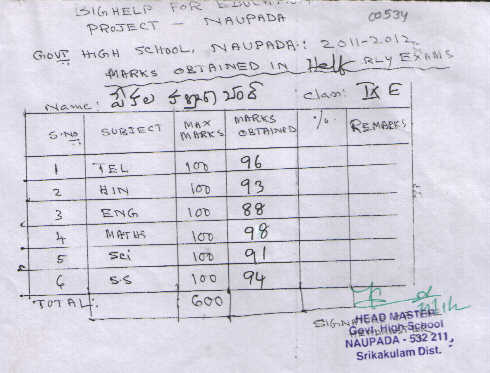 SIGHELP FOR EDUCATION
PROJECT - NAUPADA
00534
GOVT HIGH SCHOOL, NAUPADA: 2011-2012
MARKS OBTAINED IN Half RLY EXAMS
Name: Class: IX E
S.NO SUBJECT MAX MARKS MARKS OBTAINED % REMARKS
1 TEL 100 96
2 HIN 100 93
3 ENG 100 88
4 MATHS 100 98
5 Sci 100 91
6 S.S 100 94
TOTAL: 600
HEAD MASTER
Govt. High School
NAUPADA - 532 211,
Srikakulam Dist.